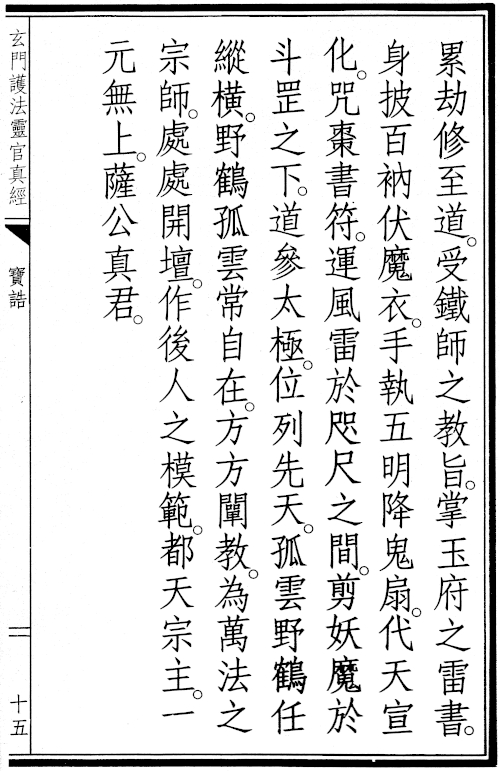 累劫修至道。受鐵師之教旨。掌玉府之雷書。
身披百衲伏魔衣。手執五明降鬼扇。代天宣
化。咒棗書符。運風雷於咫尺之間。剪妖魔於
斗罡之下。道參太極。位列先天。孤雲野鶴任
縱橫。野鶴孤雲常自在。方方闡教。為萬法之
宗師。處處開壇。作後人之模範。都天宗主。一
元無上。薩公真君。
玄門護法靈官真經
寶誥
十五